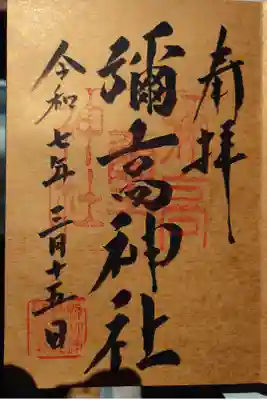 奉拝
彌高神社
令和七年三月十五日